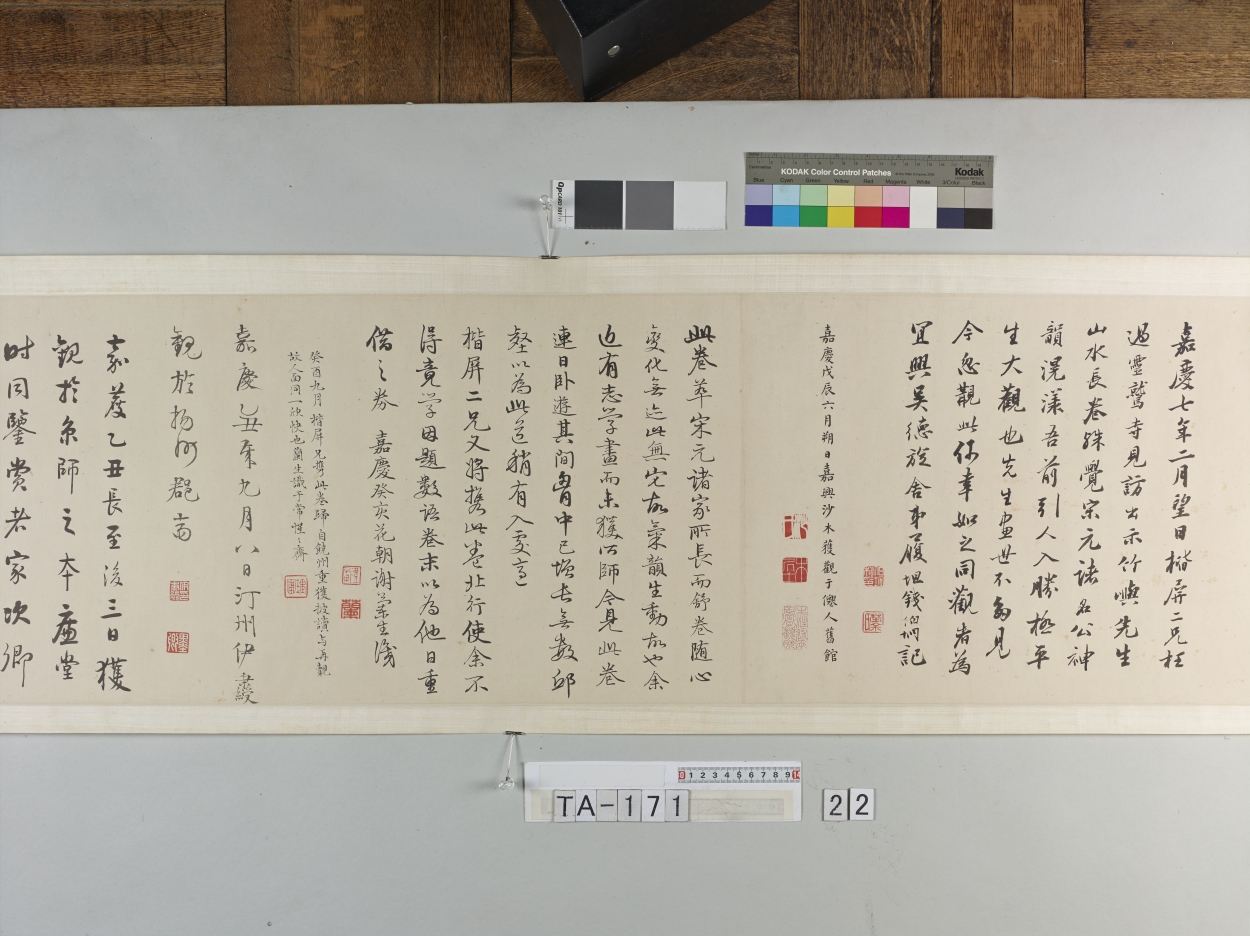 嘉慶七年二月望日楷屏二兄枉
過靈鷲寺見訪出示竹嶼先生
山水長卷殊覺宋元諸名公神
韻滉漾吾前引人入勝極平
生大觀也先生畫世不多見
今忽覩此何幸如之同觀者為
宜興吳德旋舍弟履坦錢伯坰記
嘉慶戊辰六月朔日嘉興沙木獲觀于儴人舊館
此卷萃宋元諸家所長而舒卷随心
變化無迹此無它故氣韻生動故也余
近有志學畫而未獲所師今見此卷
連日卧遊其間胷中已增長無数邱
壑以為此道稍有入處高
楷屏二兄又將攜此卷北行使余不
得竟学因題数語卷末以為他日重
借之券 嘉慶癸亥花朝謝蘭生識
癸酉九月楷屏兄攜此卷歸自饒州重獲披讀与再觀
故人面同一欣快也蘭生識于常惺惺齋
嘉慶乙丑年九月八日汀州伊秉綬
觀於揚州郡齋
嘉慶乙丑長至後三日獲
觀於京師之本廬堂
時同鑒賞者家次卿
KODAK Color Control Patches
Kodak
Blue Cyan Green Yellow Red Magenta White 3/Color Black
QPcard 101
1 2 3 4 5 6 7 8 9
TA-171
22